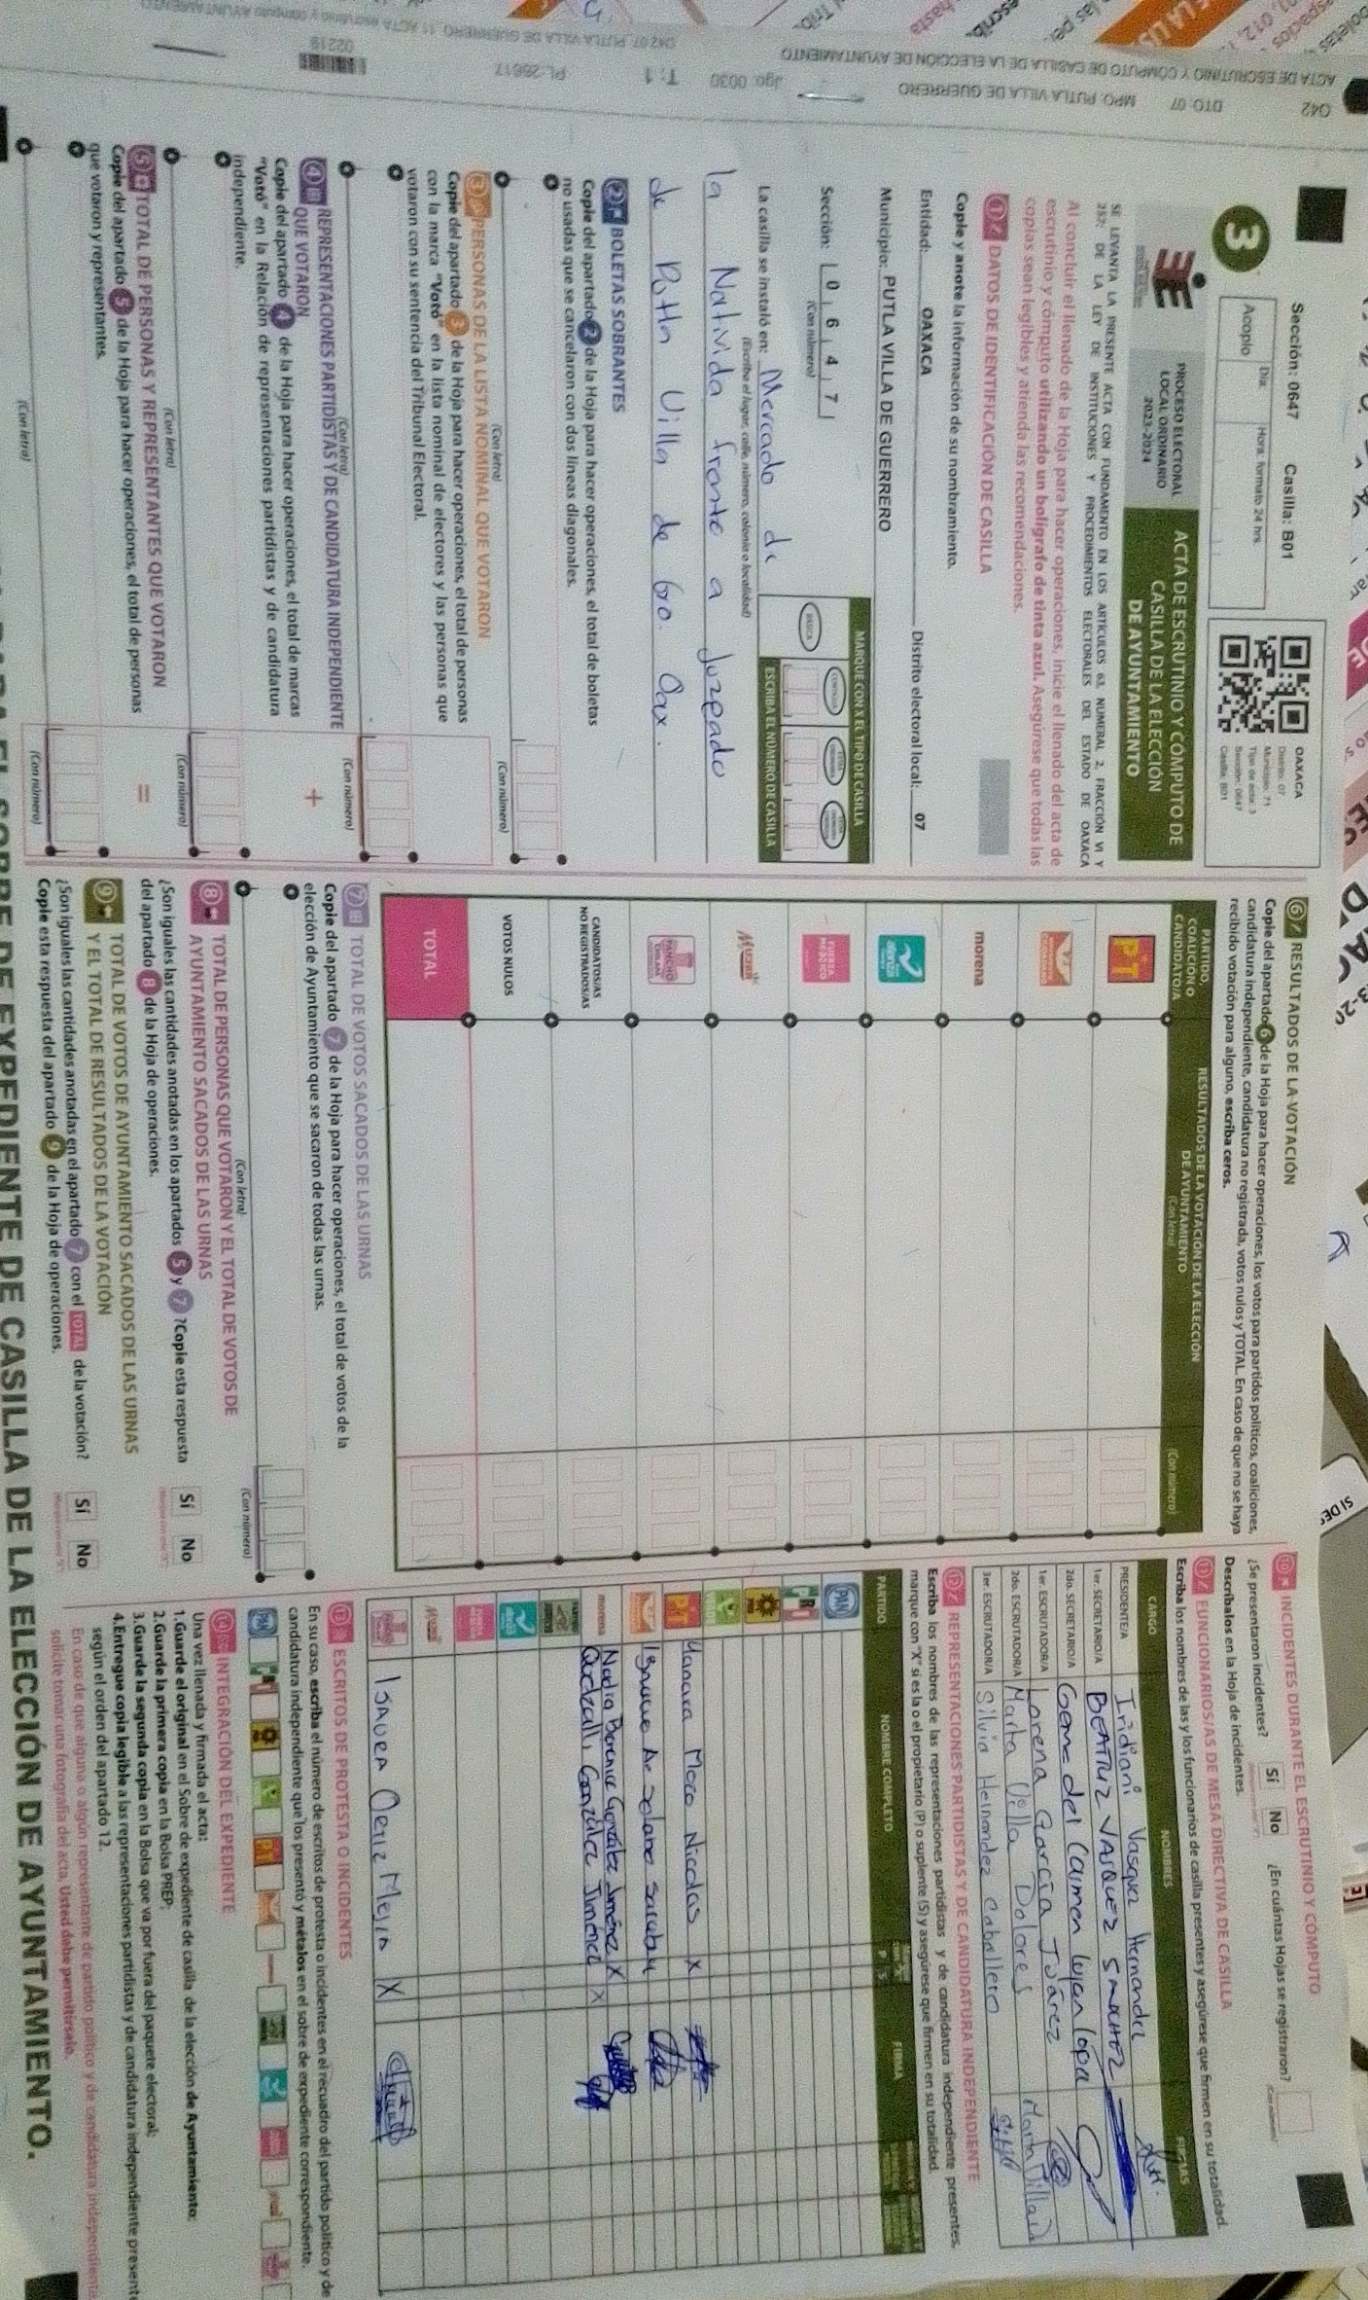 Sección: 0647 Casilla: B01
3
Acopio
Día:
Hora: formato 24 hrs.
OAXACA
Distrito: 07
Municipio: 71
Tipo de acta: 3
Sección: 0647
Casilla: B01
PROCESO ELECTORAL
LOCAL ORDINARIO
2023-2024
ACTA DE ESCRUTINIO Y CÓMPUTO DE
CASILLA DE LA ELECCIÓN
DE AYUNTAMIENTO
SE LEVANTA LA PRESENTE ACTA CON FUNDAMENTO EN LOS ARTÍCULOS 63, NUMERAL 2, FRACCIÓN VI Y
257; DE LA LEY DE INSTITUCIONES Y PROCEDIMIENTOS ELECTORALES DEL ESTADO DE OAXACA
Al concluir el llenado de la Hoja para hacer operaciones, inicie el llenado del acta de
escrutinio y cómputo utilizando un bolígrafo de tinta azul. Asegúrese que todas las
copias sean legibles y atienda las recomendaciones.
1 DATOS DE IDENTIFICACIÓN DE CASILLA
Copie y anote la información de su nombramiento.
Entidad: OAXACA Distrito electoral local: 07
Municipio: PUTLA VILLA DE GUERRERO
Sección: 0 6 4 7
(Con número)
MARQUE CON X EL TIPO DE CASILLA
BÁSICA
ESCRIBA EL NÚMERO DE CASILLA
La casilla se instaló en: Mercado de
(Escriba el lugar, calle, número, colonia o localidad)
la Natividad frente a Juzgado
de Putla Villa de Gro. Oax.
2 BOLETAS SOBRANTES
Copie del apartado 2 de la Hoja para hacer operaciones, el total de boletas
no usadas que se cancelaron con dos líneas diagonales.
(Con letra) (Con número)
3 PERSONAS DE LA LISTA NOMINAL QUE VOTARON
Copie del apartado 3 de la Hoja para hacer operaciones, el total de personas
con la marca "Votó" en la lista nominal de electores y las personas que
votaron con su sentencia del Tribunal Electoral.
(Con letra) (Con número)
4 REPRESENTACIONES PARTIDISTAS Y DE CANDIDATURA INDEPENDIENTE
QUE VOTARON
+
Copie del apartado 4 de la Hoja para hacer operaciones, el total de marcas
"Votó" en la Relación de representaciones partidistas y de candidatura
independiente.
(Con letra) (Con número)
5 TOTAL DE PERSONAS Y REPRESENTANTES QUE VOTARON
=
Copie del apartado 5 de la Hoja para hacer operaciones, el total de personas
que votaron y representantes.
(Con letra) (Con número)
6 RESULTADOS DE LA VOTACIÓN
Copie del apartado 6 de la Hoja para hacer operaciones, los votos para partidos políticos, coaliciones,
candidatura independiente, candidatura no registrada, votos nulos y TOTAL. En caso de que no se haya
recibido votación para alguno, escriba ceros.
PARTIDO,
COALICIÓN O
CANDIDATO/A
RESULTADOS DE LA VOTACIÓN DE LA ELECCIÓN
DE AYUNTAMIENTO
(Con letra) (Con número)
PT
morena
nueva alianza
FUERZA MÉXICO
Mujer
CANDIDATOS/AS
NO REGISTRADOS/AS
VOTOS NULOS
TOTAL
7 TOTAL DE VOTOS SACADOS DE LAS URNAS
Copie del apartado 7 de la Hoja para hacer operaciones, el total de votos de la
elección de Ayuntamiento que se sacaron de todas las urnas.
(Con letra) (Con número)
8 TOTAL DE PERSONAS QUE VOTARON Y EL TOTAL DE VOTOS DE
AYUNTAMIENTO SACADOS DE LAS URNAS
¿Son iguales las cantidades anotadas en los apartados 5 y 7 ? Copie esta respuesta
del apartado 8 de la Hoja de operaciones.
Sí No
9 TOTAL DE VOTOS DE AYUNTAMIENTO SACADOS DE LAS URNAS
Y EL TOTAL DE RESULTADOS DE LA VOTACIÓN
¿Son iguales las cantidades anotadas en el apartado 7 con el TOTAL de la votación?
Copie esta respuesta del apartado 9 de la Hoja de operaciones.
Sí No
10 INCIDENTES DURANTE EL ESCRUTINIO Y CÓMPUTO
¿Se presentaron incidentes? Sí No ¿En cuántas Hojas se registraron?
Descríbalos en la Hoja de incidentes.
11 FUNCIONARIOS/AS DE MESA DIRECTIVA DE CASILLA
Escriba los nombres de las y los funcionarios de casilla presentes y asegúrese que firmen en su totalidad.
CARGO NOMBRES FIRMAS
PRESIDENTE/A Iridiani Vasquez Hernandez
1er. SECRETARIO/A BEATRIZ VASQUEZ SANCHEZ
2do. SECRETARIO/A Gema del Carmen Lujan Lopez
1er. ESCRUTADOR/A Lorena García Juárez
2do. ESCRUTADOR/A Marta Villa Dolores
3er. ESCRUTADOR/A Silvia Hernandez Caballero
12 REPRESENTACIONES PARTIDISTAS Y DE CANDIDATURA INDEPENDIENTE
Escriba los nombres de las representaciones partidistas y de candidatura independiente presentes,
marque con "X" si es la o el propietario (P) o suplente (S) y asegúrese que firmen en su totalidad.
PARTIDO NOMBRE COMPLETO P S FIRMA
PAN
PRI
PT Yanara Meco Nicolas X
morena Nadia Berenice González Jiménez X
Quetzalli González Jimenez X
ISAURA Ortiz Mejia X
13 ESCRITOS DE PROTESTA O INCIDENTES
En su caso, escriba el número de escritos de protesta o incidentes en el recuadro del partido político y de
candidatura independiente que los presentó y métalos en el sobre de expediente correspondiente.
14 INTEGRACIÓN DEL EXPEDIENTE
Una vez llenada y firmada el acta:
1.Guarde el original en el Sobre de expediente de casilla de la elección de Ayuntamiento;
2.Guarde la primera copia en la Bolsa PREP;
3.Guarde la segunda copia en la Bolsa que va por fuera del paquete electoral;
4.Entregue copia legible a las representaciones partidistas y de candidatura independiente present
según el orden del apartado 12.
En caso de que alguna o algún representante de partido político y de candidatura independiente
solicite tomar una fotografía del acta, Usted debe permitírselo.
DE EXPEDIENTE DE CASILLA DE LA ELECCIÓN DE AYUNTAMIENTO.
042 DTO. 07 MPO. PUTLA VILLA DE GUERRERO
ACTA DE ESCRUTINIO Y CÓMPUTO DE CASILLA DE LA ELECCIÓN DE AYUNTAMIENTO
Jgo. 0030 T: 1 PL: 26617
02219